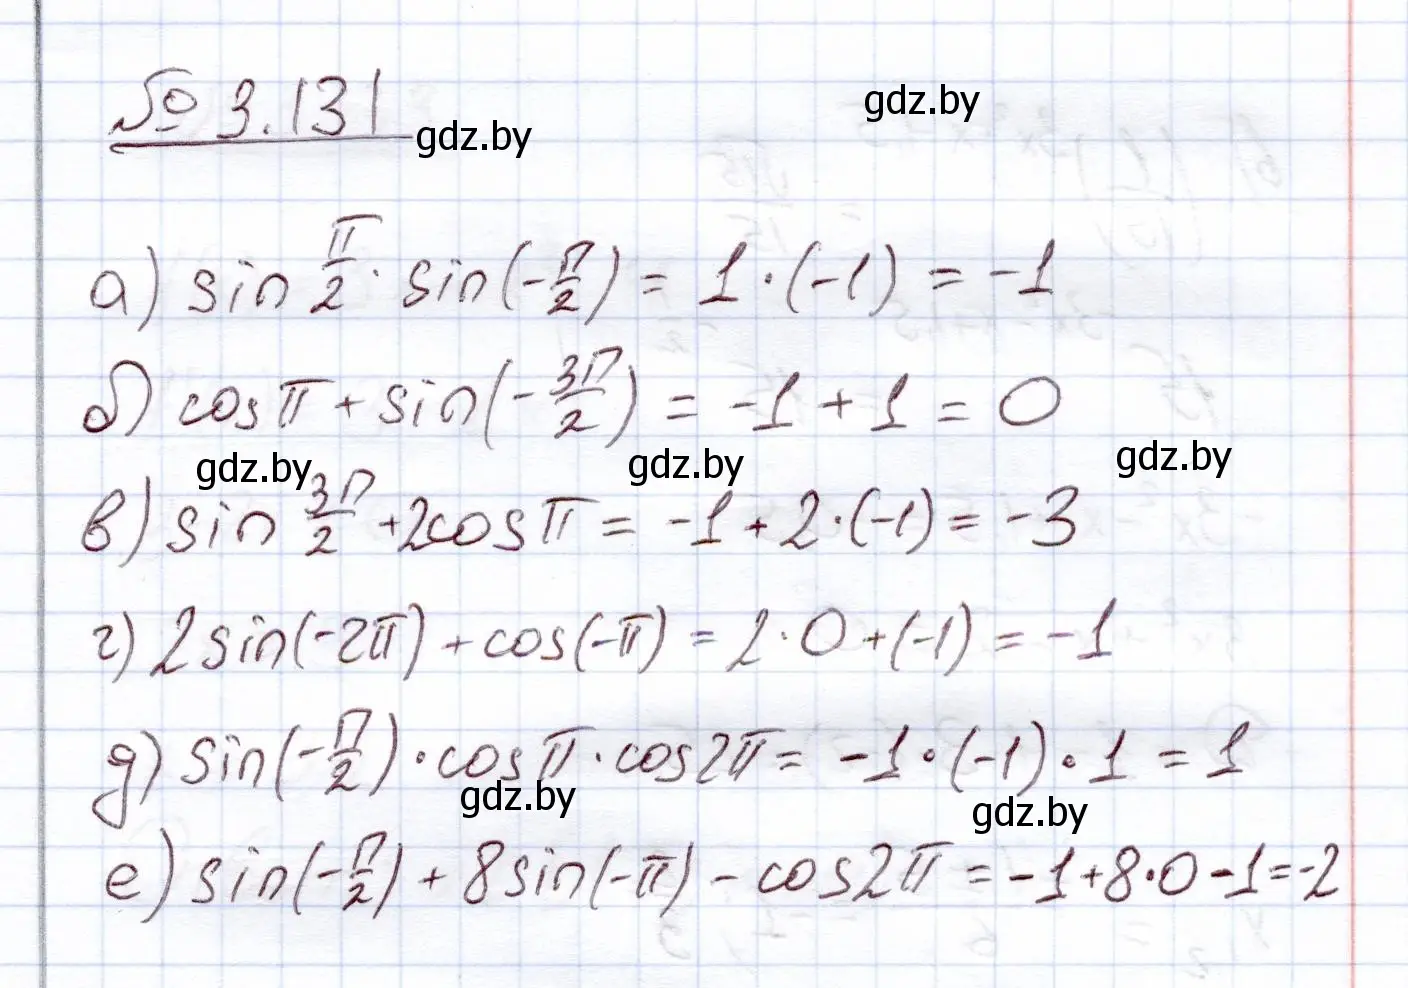 № 3.131
gdz.by
gdz.by
а) sin π/2 · sin(-π/2) = 1 · (-1) = -1
б) cos π + sin(-3π/2) = -1 + 1 = 0
gdz.by
gdz.by
gdz.by
в) sin 3π/2 + 2cos π = -1 + 2·(-1) = -3
г) 2 sin(-2π) + cos(-π) = 2·0 + (-1) = -1
д) sin(-π/2) · cos π · cos 2π = -1 · (-1) · 1 = 1
gdz.by
gdz.by
е) sin(-π/2) + 8 sin(-π) - cos 2π = -1 + 8·0 - 1 = -2